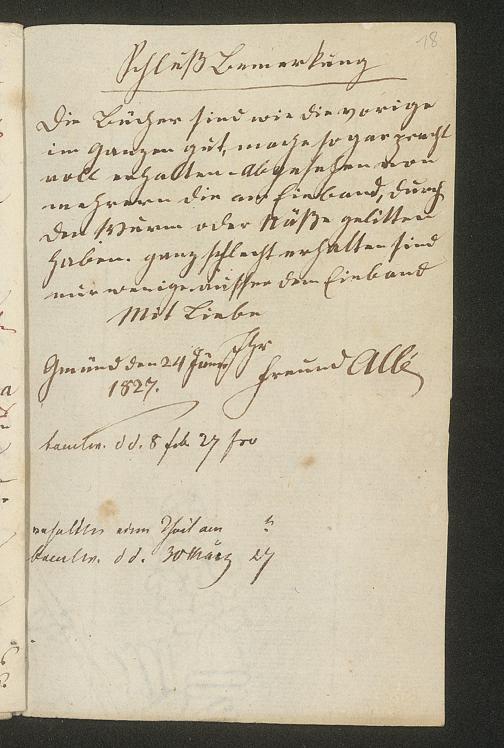 18
Schluß Bemerkung
Die Bücher sind wie die vorige
im Ganzen gut, manche sogar pracht
voll erhalten. Abgesehen von
mehrern die am Einband, durch
den Wurm oder Näße gelitten
haben. ganz schlecht erhalten sind
nur wenige ausser dem Einband
Mit Liebe
Ihr
Gmünd den 24 Jäner
Freund Allé
1827.
beantw. dd. 8 feb. 27
erhalten einen Theil am
beantw. dd. 30 März 27